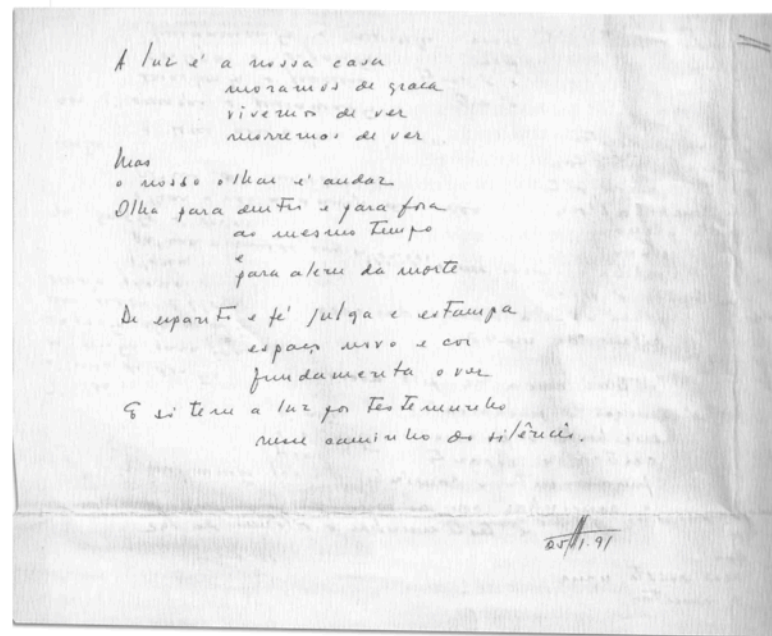 A luz é a nossa casa
moramos de graça
vivemos de ver
morremos de ver
Mas
o nosso olhar é audaz
Olha para dentro e para fora
ao mesmo tempo
e
para além da morte
De espanto e fé julga e estampa
espaço novo e cor
fundamenta o ver
E só tem a luz por testemunho
nesse caminho do silêncio.